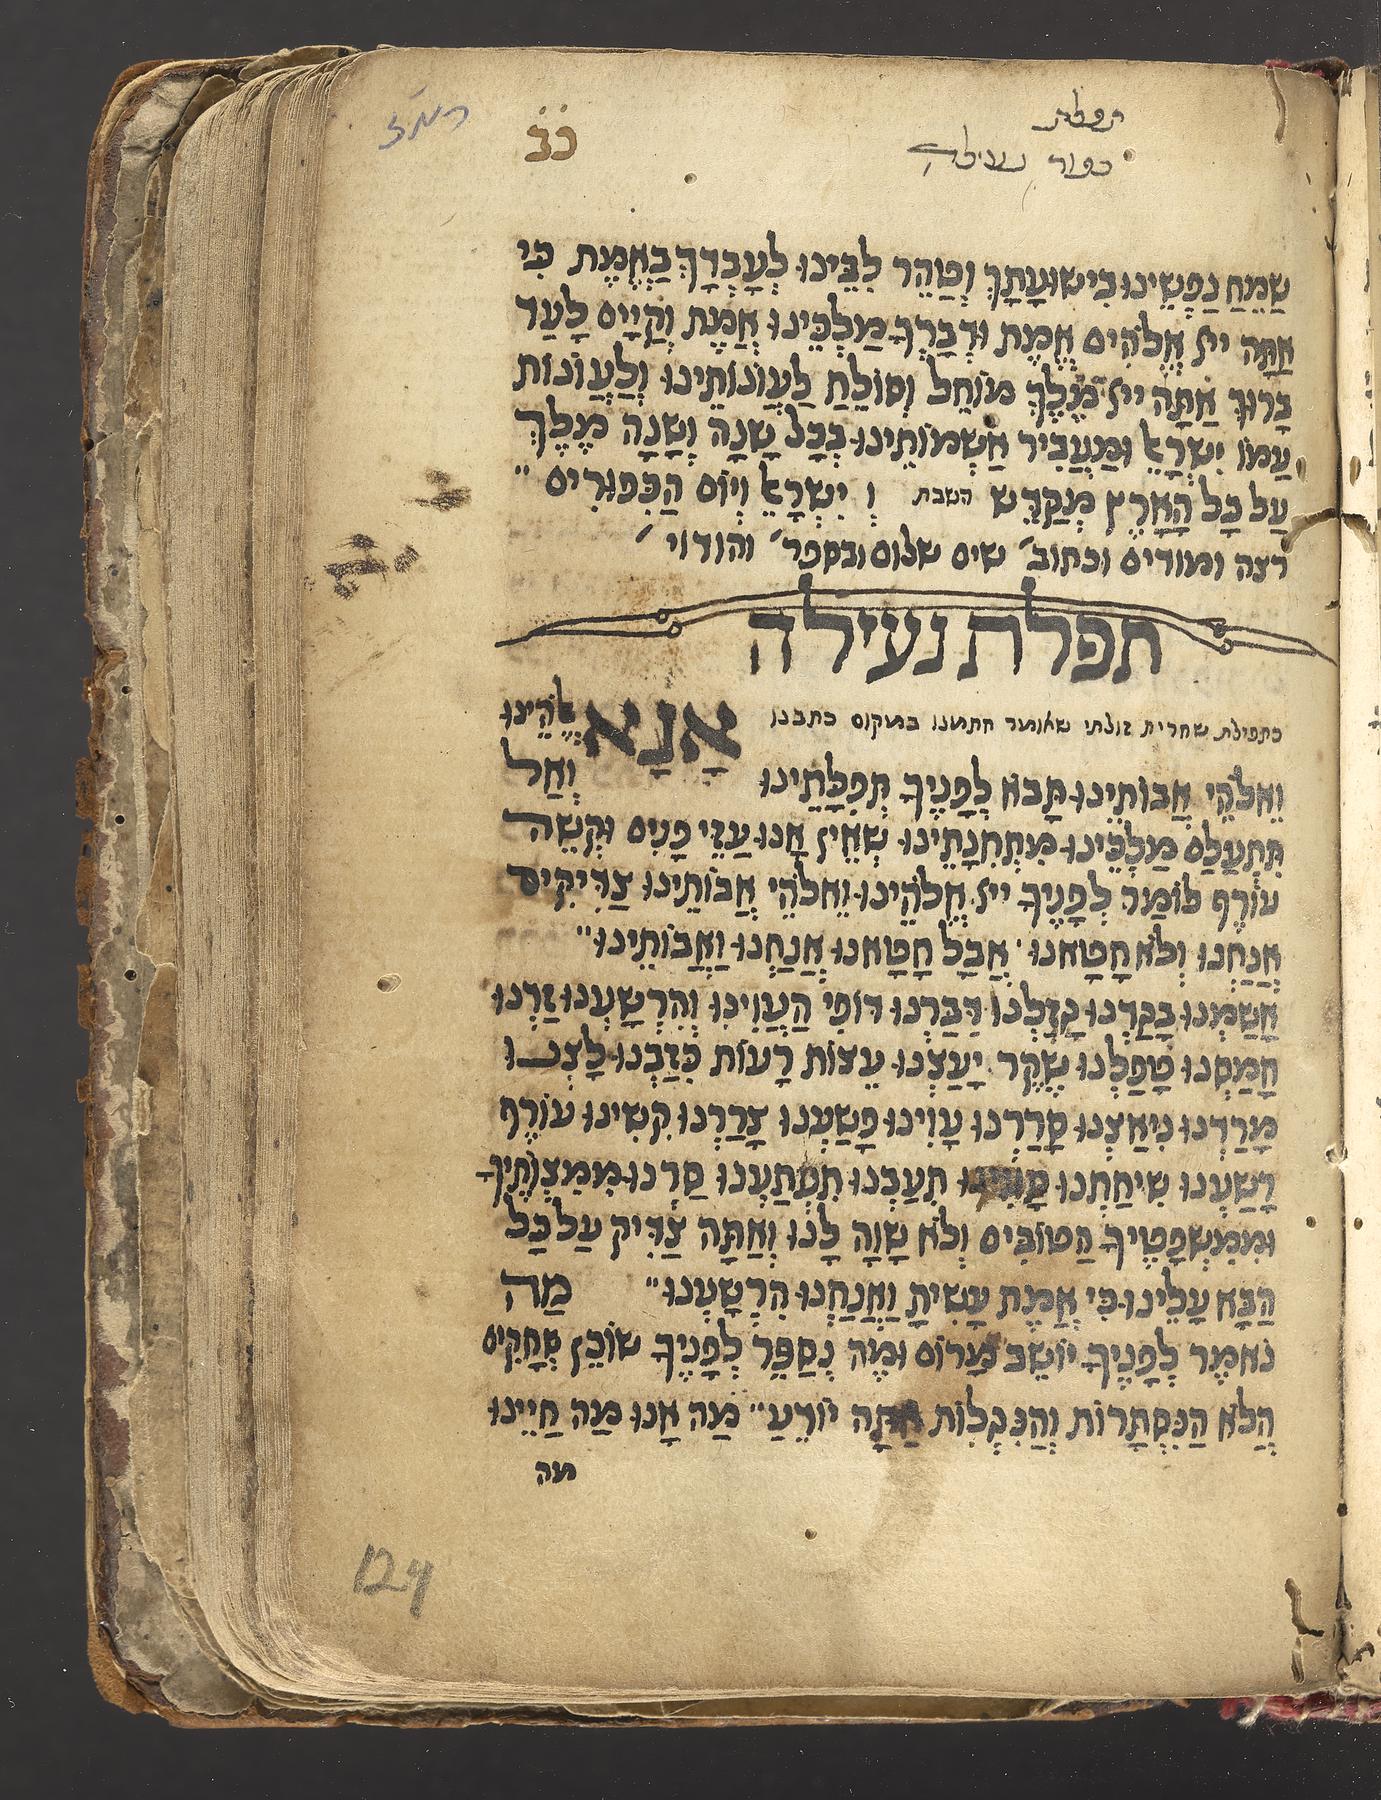 תפלת
כפור נעילה
כב
שַׂמֵּחַ נַפְשֵׁינוּ בִישׁוּעָתָךְ וְטַהֵר לִבֵּינוּ לְעָבְדָךְ בַּאֲמֶת כִּי
אַתָּה ייי אֱלֹהִים אֱמֶת וּדְבָרְךָ מַלְכֵּינוּ אֱמֶת וְקַיָּים לָעַד
בָּרוּךְ אַתָּה ייי מֶלֶךְ מוֹחֵל וְסוֹלֵחַ לַעֲוֹנוֹתֵינוּ וְלַעֲוֹנוֹת
עַמּוֹ יִשְׂרָאֵל וּמַעֲבִיר אַשְׁמוֹתֵינוּ בְּכָל שָׁנָה וְשָׁנָה מֶלֶךְ
עַל כָּל הָאָרֶץ מְקַדֵּשׁ השבת וְ יִשְׂרָאֵל וְיוֹם הַכִּפּוּרִים ״
רצה ומודים וכתוב׳ שים שלום ובספר׳ והודוי ׳
תפלת נעילה
כתפילת שחרית זולתי שאומר חתמנו במקום כתבנו אָנָא אֱלֹהֵינוּ
וֵאלֹהֵי אֲבוֹתֵינוּ תָּבֹא לְפָנֶיךָ תְּפִלָּתֵינוּ וְאַל
תִּתְעַלַּם מַלְכֵּינוּ מִתְּחִנָּתֵינוּ שֶׁאֵין אָנוּ עַזֵּי פָנִים וּקְשֵׁה
עוֹרֶף לוֹמַר לְפָנֶיךָ ייי אֱלֹהֵינוּ וֵאלֹהֵי אֲבוֹתֵינוּ צַדִּיקִים
אֲנַחְנוּ וְלֹא חָטָאנוּ ׳ אֲבָל חָטָאנוּ אֲנַחְנוּ וַאֲבוֹתֵינוּ ״
אָשַׁמְנוּ בָּגַדְנוּ גָּזַלְנוּ דִּבַּרְנוּ דוֹפִי הֶעֱוִינוּ וְהִרְשַׁעְנוּ זַדְנוּ
חָמַסְנוּ טָפַלְנוּ שֶׁקֶר יָעַצְנוּ עֵצוֹת רָעוֹת כִּזַּבְנוּ לַצְנוּ
מָרַדְנוּ נִיאַצְנוּ סָרַרְנוּ עָוִינוּ פָּשַׁעְנוּ צָרַרְנוּ קִשִּׁינוּ עוֹרֶף
רָשַׁעְנוּ שִׁיחַתְנוּ תִּעַבְנוּ תִּעְתַּעְנוּ סַרְנוּ מִמִּצְוֹתֶיךָ
וּמִמִּשְׁפָּטֶיךָ הַטּוֹבִים וְלֹא שָׁוָה לָנוּ וְאַתָּה צַדִּיק עַל כָּל
הַבָּא עָלֵינוּ כִּי אֱמֶת עָשִׂיתָ וַאֲנַחְנוּ הִרְשָׁעְנוּ ״ מַה
נֹּאמֶר לְפָנֶיךָ יוֹשֵׁב מָרוֹם וּמַה נְּסַפֵּר לְפָנֶיךָ שׁוֹכֵן שְׁחָקִים
הֲלֹא הַנִּסְתָּרוֹת וְהַנִּגְלוֹת אַתָּה יוֹדֵעַ ״ מַה אָנוּ מַה חַיֵּינוּ
מה
124